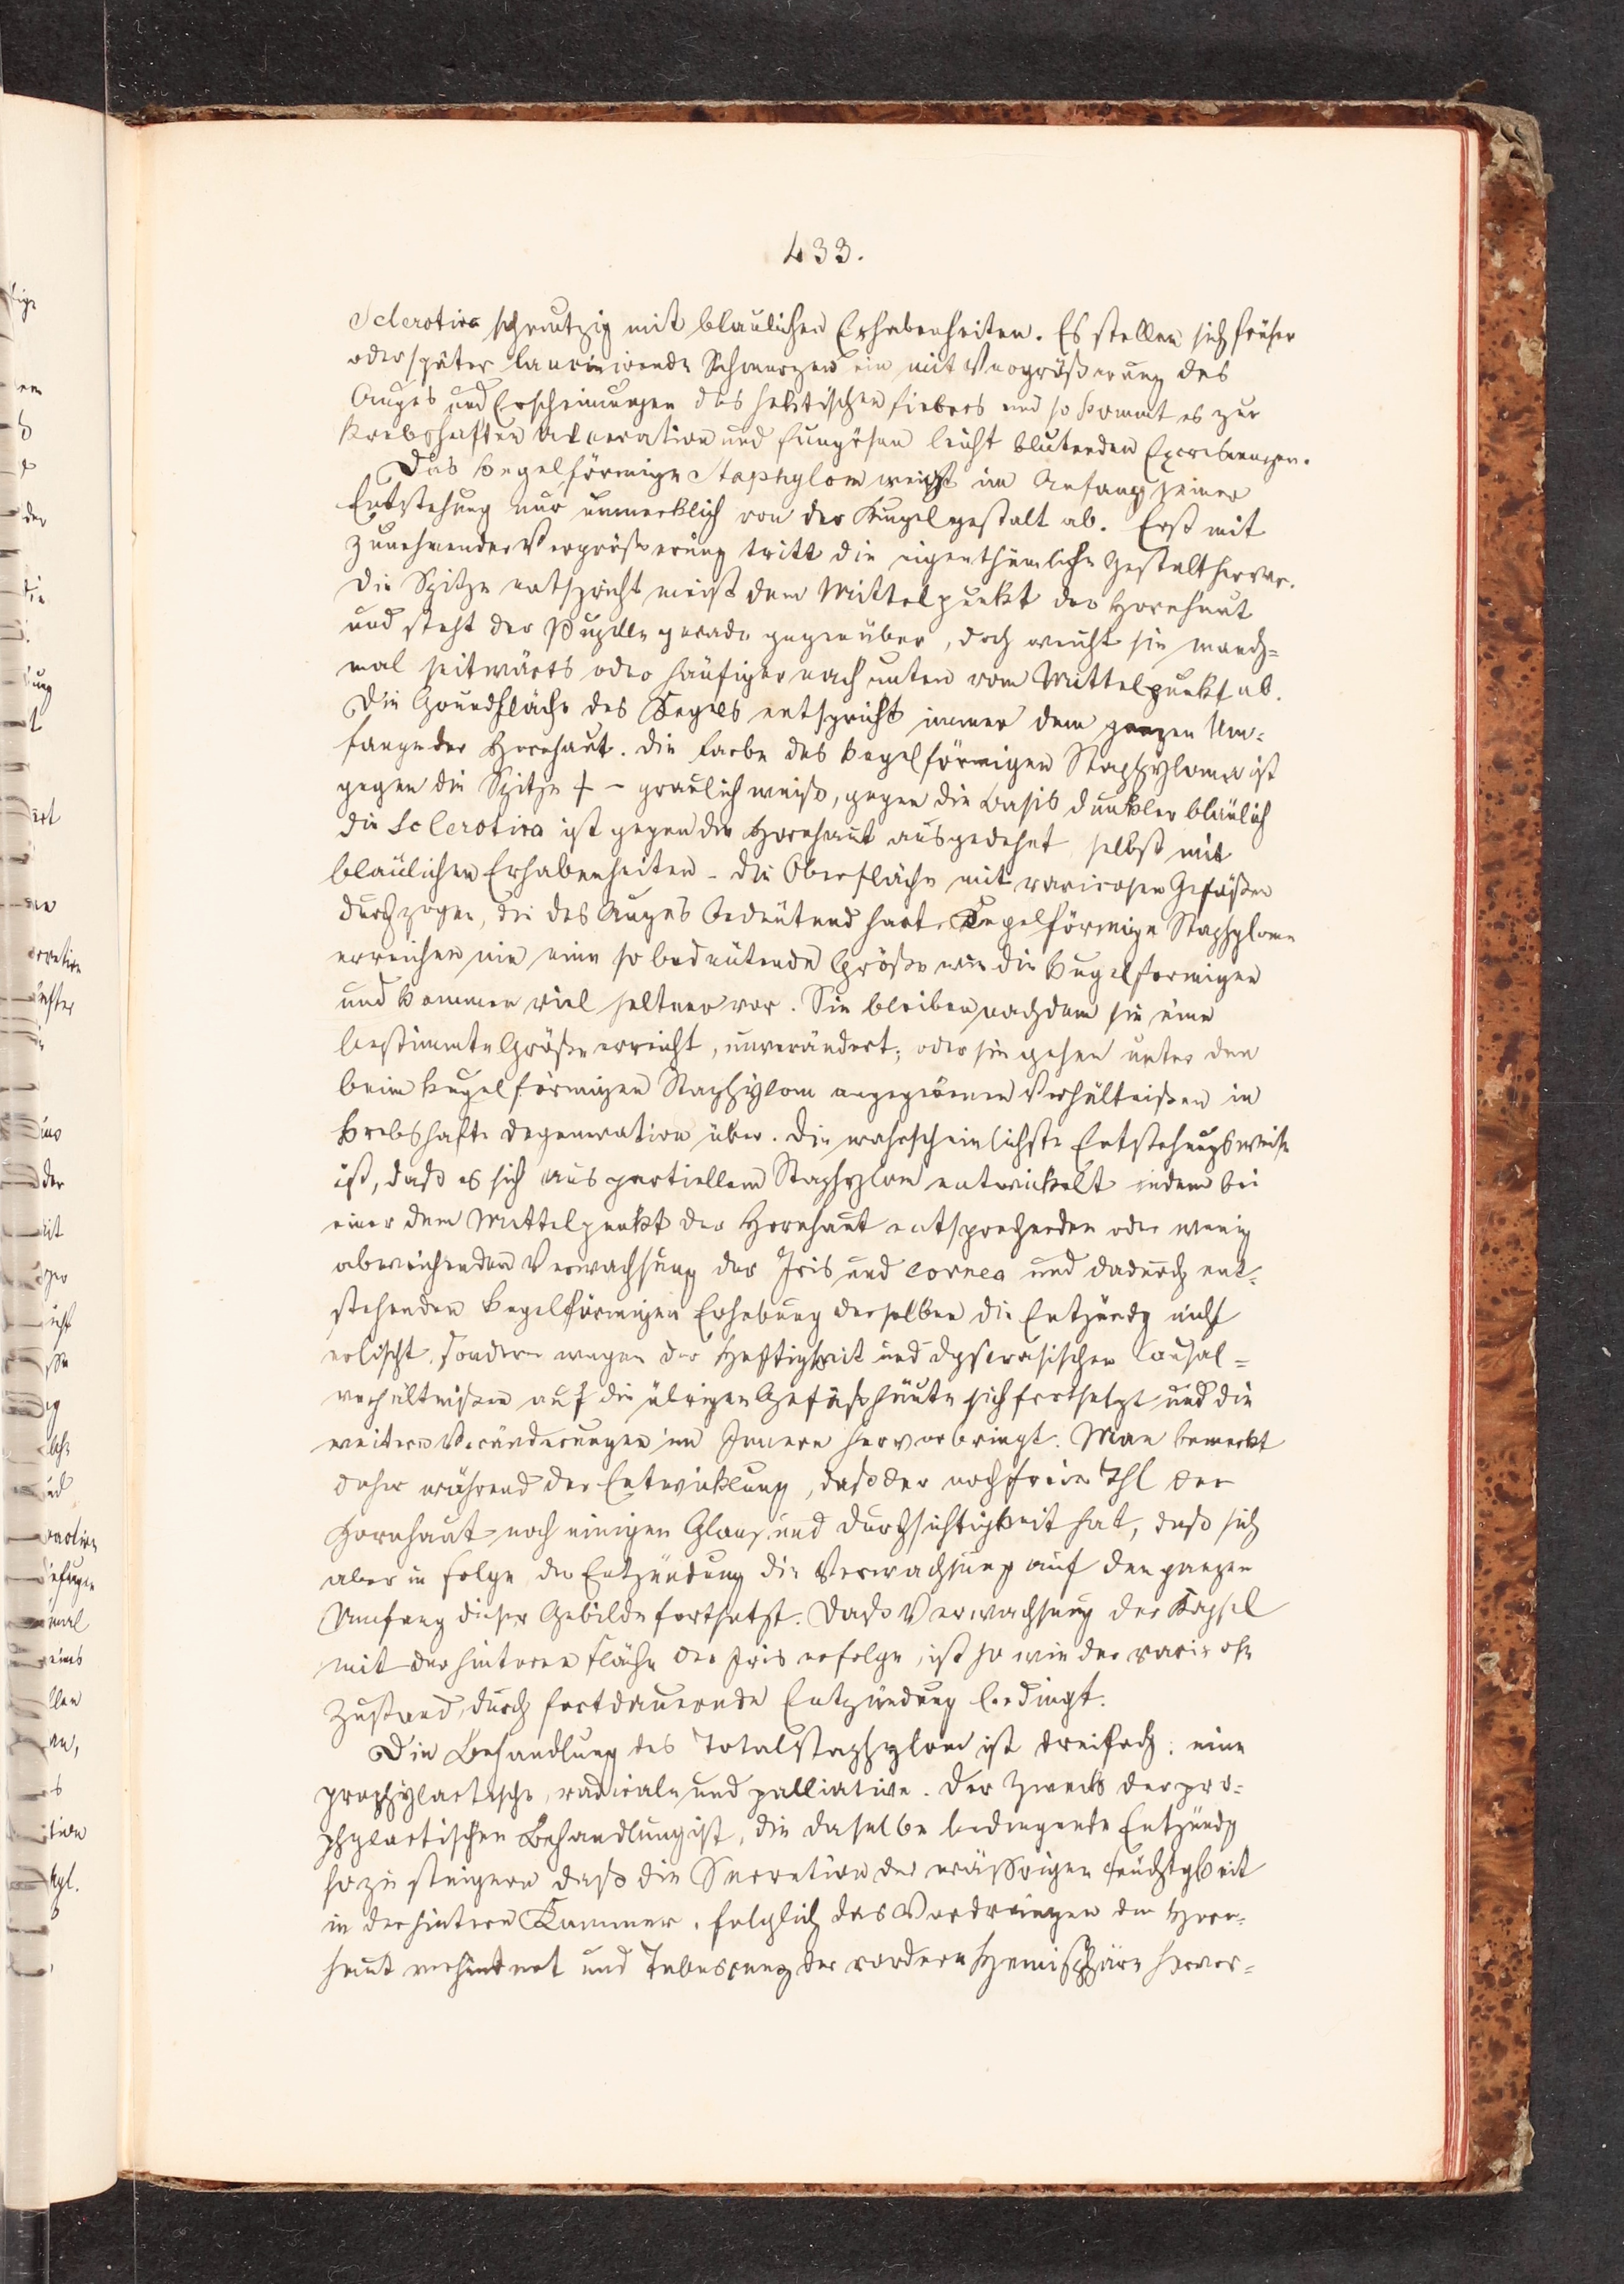 433.
Sclerotica schmutzig mit blaulichen Erhabenheiten. Es stellen sich früher
oder später lancinirende Schmerzen ein mit Vergrößerung des
Auges und Erscheinungen des hektischen Fiebers und so kommt es zur
krebshaften Ulceration und fungösen leicht blutenden Excrescenzen.
Das kegelförmige Staphylom weicht im Anfang seiner
Entstehung nur unmerklich von der Kugelgestalt ab. Erst mit
zunehmender Vergrößerung tritt die eigenthümliche Gestalt hervor.
Die Spitze entspricht meist dem Mittelpunkt der Hornhaut
und steht der Pupille gerade gegenüber, doch weicht sie manch=
mal seitwärts oder häufiger nach unten vom Mittelpunkt ab.
Die Grundfläche des Kegels entspricht immer dem ganzen Um=
fange der Hornhaut. Die Farbe des kegelförmigen Staphyloms ist
gegen die Spitze + – graulich weiß, gegen die Basis dunkler bläulich
die Sclerotica ist gegen die Hornhaut ausgedehnt selbst mit
bläulichen Erhabenheiten – die Oberfläche mit varicosen Gefäßen
durchzogen, die des Auges bedeutend hart. Kegelförmige Staphylome
erreichen nie eine so bedeutende Größe wie die kugelformigen
und kommen viel seltner vor. Sie bleiben nachdem sie eine
bestimmte Größe erreicht, unverändert; oder sie gehen unter den
beim kugelförmigen Staphylom angegebenen Verhältnißen in
krebshafte Degeneration über. Die wahrscheinlichste Entstehungsweise
ist, daß es sich aus partiellem Staphylom entwickelt indem bei
einer dem Mittelpunkt der Hornhaut entsprechenden oder wenig
abweichenden Verwachsung der Iris und cornea und dadurch ent=
stehenden kegelförmigen Erhebung derselben die Entzündg nicht
erlischt, sondern wegen der Heftigkeit und dyscrasischen Causal=
verhältnißen auf die übrigen Gefäßhäute sich fortsetzt und die
weitern Veränderungen im Innern hervorbringt. Man bemerkt
daher während der Entwicklung, daß der noch freie Thl der
Hornhaut noch einigen Glanz und Durchsichtigkeit hat, daß sich
aber in Folge der Entzündung die Verwachsung auf den ganzen
Umfang dieser Gebilde fortsetzt. Daß Verwachsung der Kapsel
mit der hinteren Fläche der Iris erfolge, ist so wie der varicose
Zustand, durch fortdauernde Entzündung bedingt.
Die Behandlung des Totalstaphylom ist dreifach; eine
prophylactische, radicale und palliative. Der Zweck der pro=
phylactischen Behandlung ist, die daselbe bedingende Entzündg
so zu steigern daß die Secretion der wäßrigen Feuchtigkeit
in der hintern Kammer, folglich das Vordringen der Horn=
haut verhindert und Tabescenz der vordern Hemisphäre hervor=